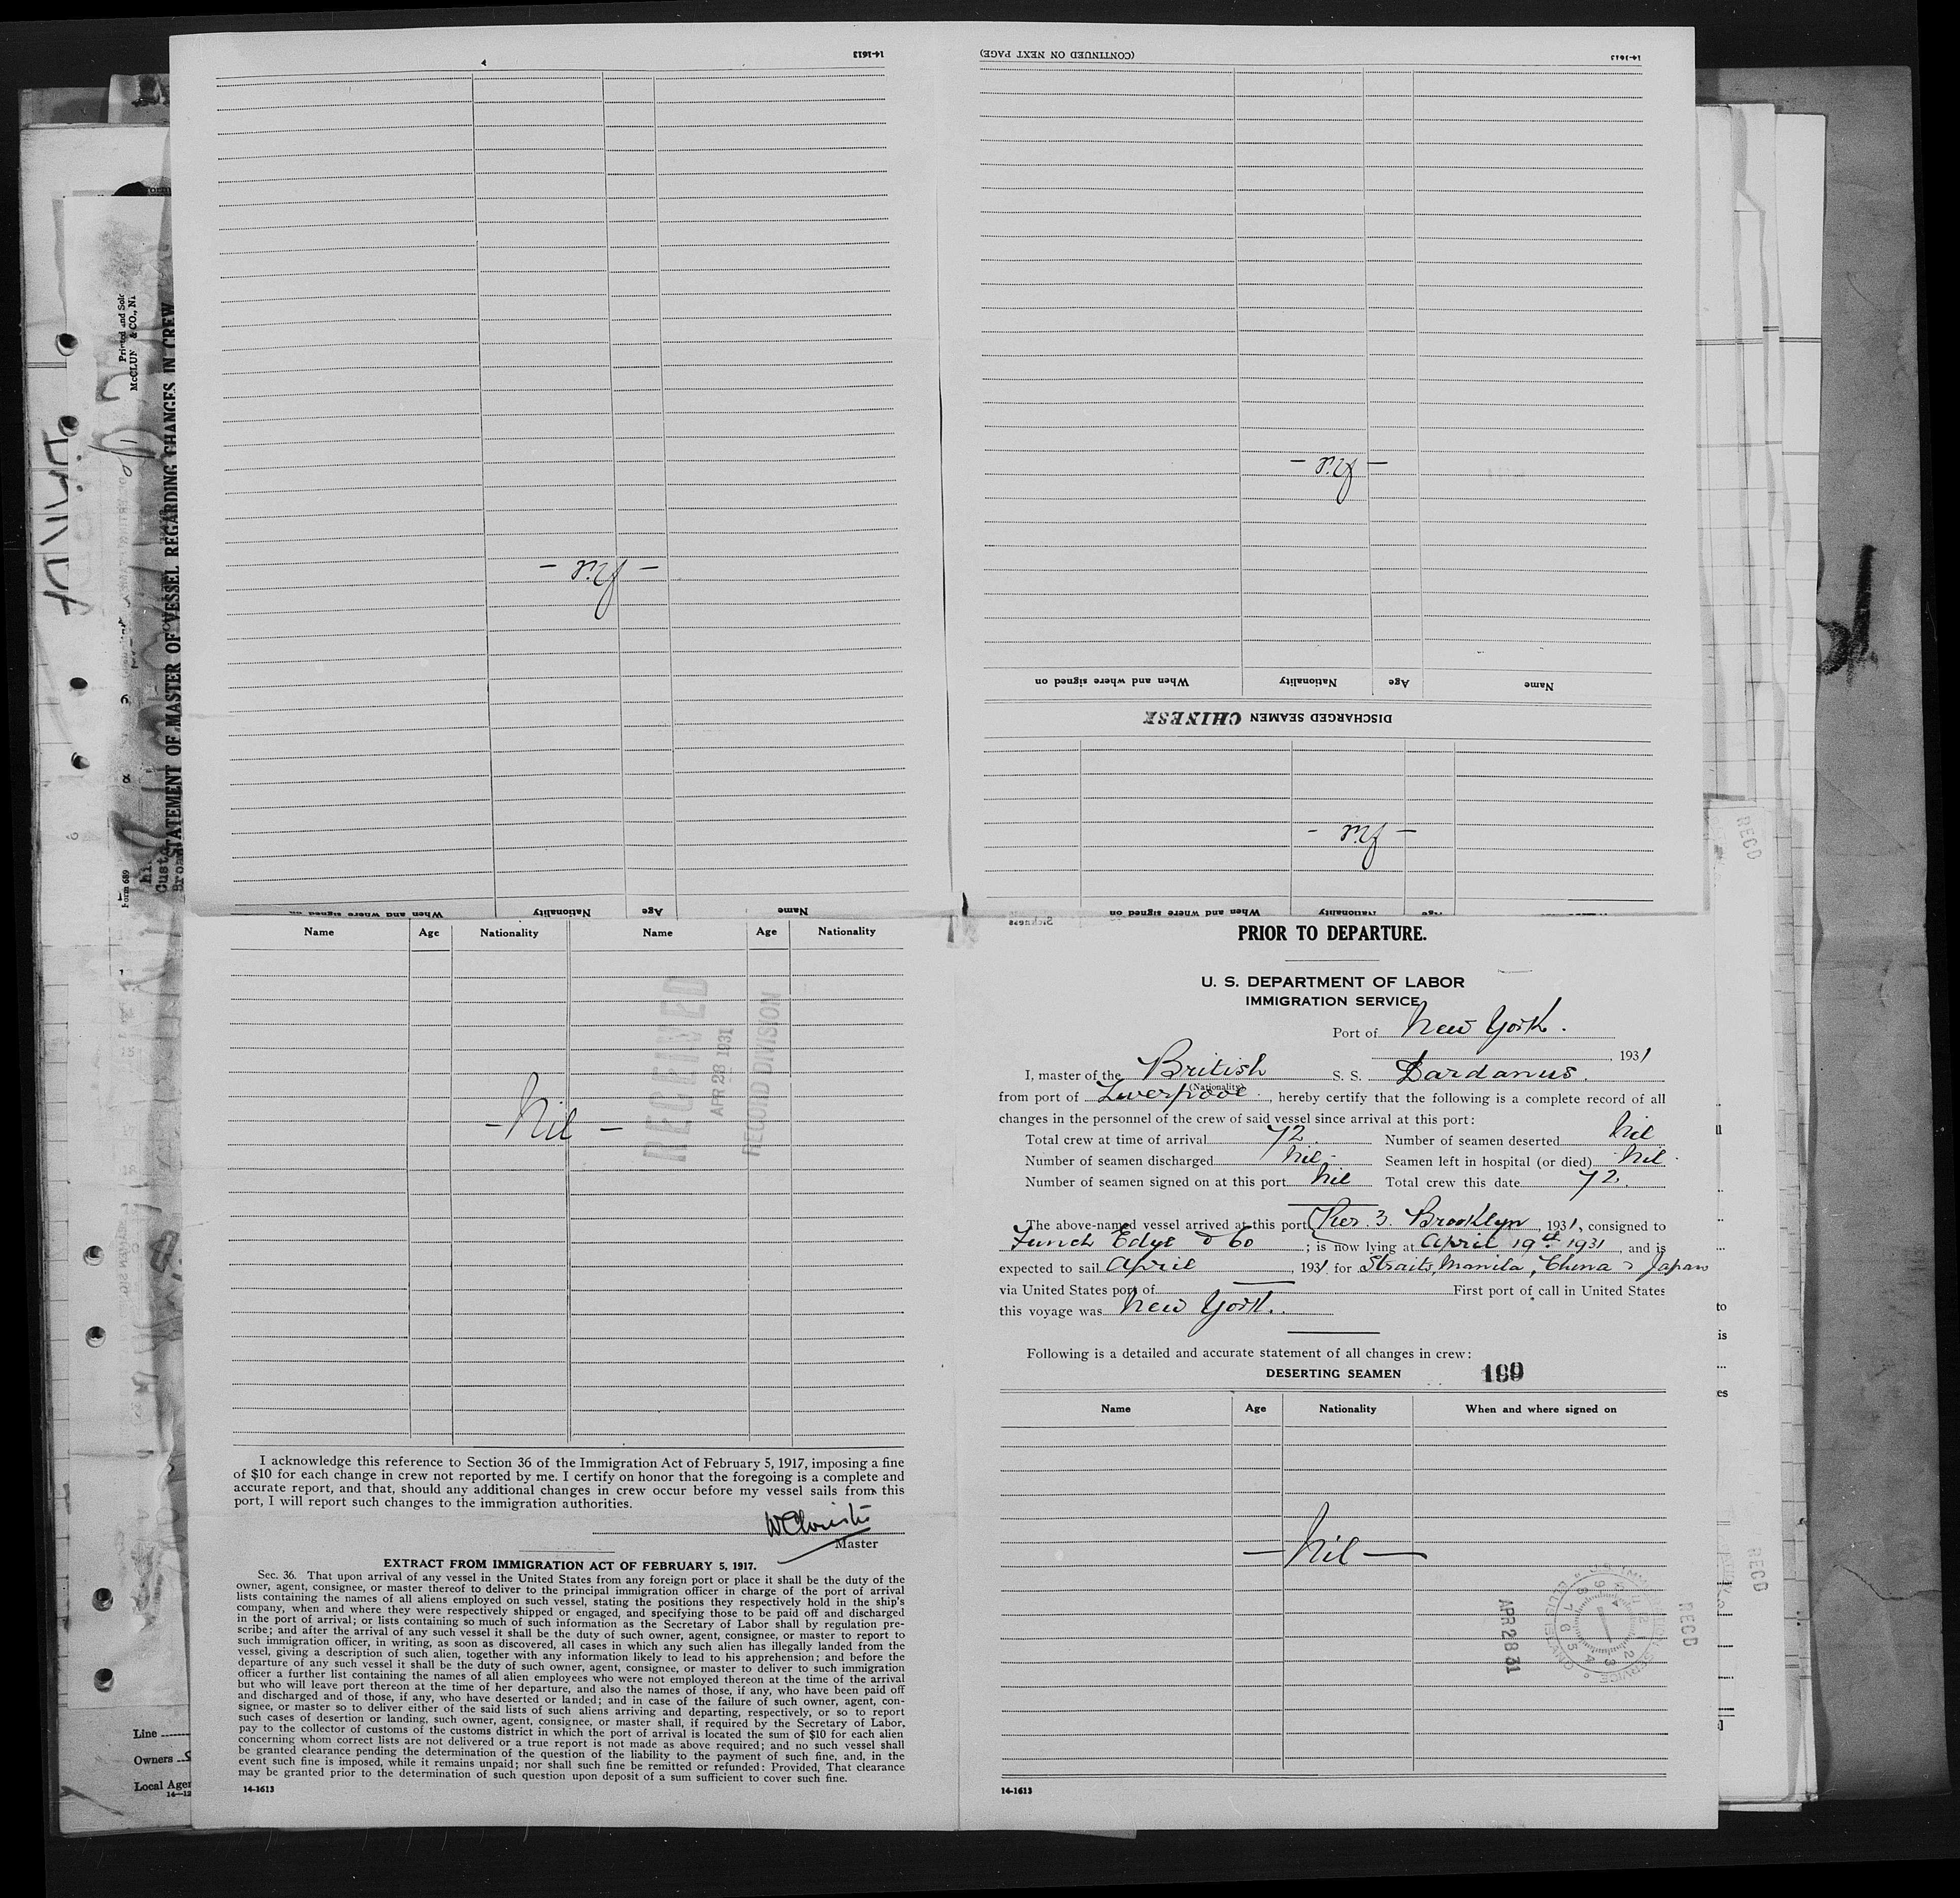 14-1613
(CONTINUED ON NEXT PAGE)
14-1613
Printed and Sold
& CO., N.
STATEMENT OF MASTER OF VESSEL REGARDING CHANGES IN CREW
Form 689
- Nil -
When and where signed on Nationality Age Name
- Nil -
When and where signed on Nationality Age Name
DISCHARGED SEAMEN CHINESE
- Nil -
When and where signed on Nationality Age
Sickness
Name Age Nationality Name Age Nationality
- Nil -
RECEIVED
APR 28 1931
RECORD DIVISION
I acknowledge this reference to Section 36 of the Immigration Act of February 5, 1917, imposing a fine
of $10 for each change in crew not reported by me. I certify on honor that the foregoing is a complete and
accurate report, and that, should any additional changes in crew occur before my vessel sails from this
port, I will report such changes to the immigration authorities.
W Christie
Master
EXTRACT FROM IMMIGRATION ACT OF FEBRUARY 5, 1917.
Sec. 36. That upon arrival of any vessel in the United States from any foreign port or place it shall be the duty of the
owner, agent, consignee, or master thereof to deliver to the principal immigration officer in charge of the port of arrival
lists containing the names of all aliens employed on such vessel, stating the positions they respectively hold in the ship's
company, when and where they were respectively shipped or engaged, and specifying those to be paid off and discharged
in the port of arrival; or lists containing so much of such information as the Secretary of Labor shall by regulation pre-
scribe; and after the arrival of any such vessel it shall be the duty of such owner, agent, consignee, or master to report to
such immigration officer, in writing, as soon as discovered, all cases in which any such alien has illegally landed from the
vessel, giving a description of such alien, together with any information likely to lead to his apprehension; and before the
departure of any such vessel it shall be the duty of such owner, agent, consignee, or master to deliver to such immigration
officer a further list containing the names of all alien employees who were not employed thereon at the time of the arrival
but who will leave port thereon at the time of her departure, and also the names of those, if any, who have been paid off
and discharged and of those, if any, who have deserted or landed; and in case of the failure of such owner, agent, con-
signee, or master so to deliver either of the said lists of such aliens arriving and departing, respectively, or so to report
such cases of desertion or landing, such owner, agent, consignee, or master shall, if required by the Secretary of Labor,
pay to the collector of customs of the customs district in which the port of arrival is located the sum of $10 for each alien
concerning whom correct lists are not delivered or a true report is not made as above required; and no such vessel shall
be granted clearance pending the determination of the question of the liability to the payment of such fine, and, in the
event such fine is imposed, while it remains unpaid; nor shall such fine be remitted or refunded: Provided, That clearance
may be granted prior to the determination of such question upon deposit of a sum sufficient to cover such fine.
14-1613
Line
Owners
Local Agen
PRIOR TO DEPARTURE.
U. S. DEPARTMENT OF LABOR
IMMIGRATION SERVICE
Port of New York.
, 1931
I, master of the British S. S. Dardanus.
(Nationality)
from port of Liverpool, hereby certify that the following is a complete record of all
changes in the personnel of the crew of said vessel since arrival at this port:
Total crew at time of arrival 72. Number of seamen deserted nil
Number of seamen discharged nil - Seamen left in hospital (or died) nil.
Number of seamen signed on at this port nil Total crew this date 72.
The above-named vessel arrived at this port Pier. 3. Brooklyn, 1931, consigned to
Funch Edye & Co; is now lying at April 19th 1931, and is
expected to sail April, 1931 for Straits, Manila, China & Japan
via United States port of First port of call in United States
this voyage was New York.
Following is a detailed and accurate statement of all changes in crew:
DESERTING SEAMEN 199
Name Age Nationality When and where signed on
- Nil -
APR 28 31
RECD
RECD
RECD
14-1613